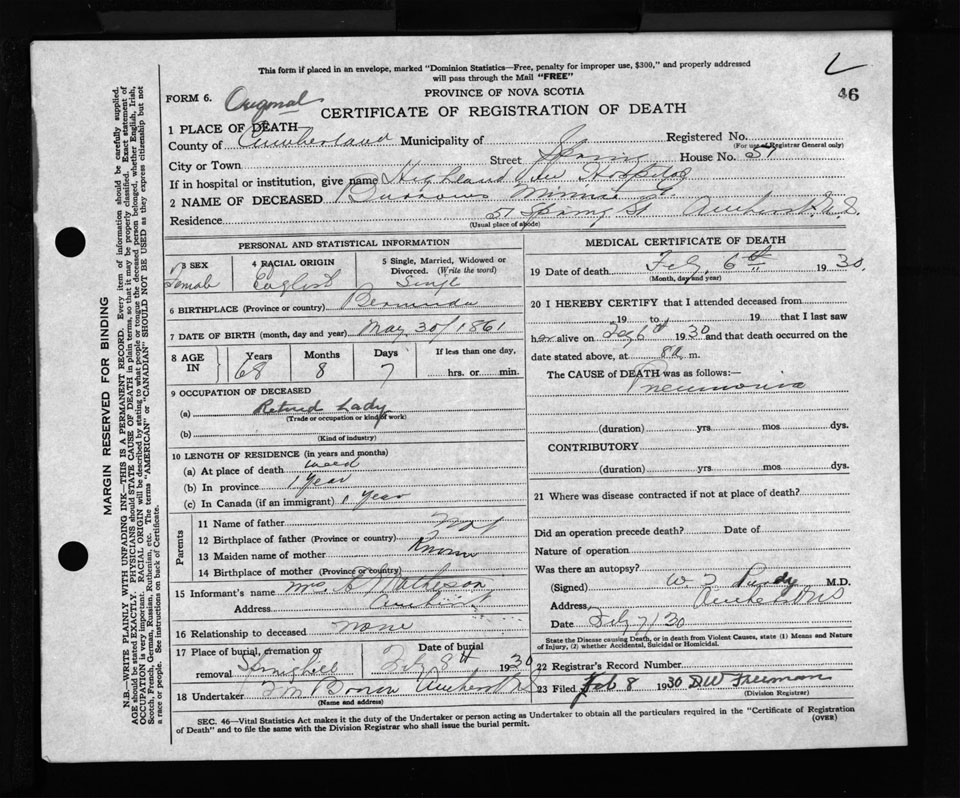 This form if placed in an envelope, marked "Dominion Statistics—Free, penalty for improper use, $300," and properly addressed
will pass through the Mail "FREE"
46
PROVINCE OF NOVA SCOTIA
FORM 6. Original
CERTIFICATE OF REGISTRATION OF DEATH
1 PLACE OF DEATH
County of Cumberland Municipality of Registered No.
(For use of Registrar General only)
City or Town Street Spring House No. 57
If in hospital or institution, give name Highland View Hospital
2 NAME OF DECEASED Burrows Minnie
Residence 57 Spring St Amherst N.S.
(Usual place of abode)
PERSONAL AND STATISTICAL INFORMATION
3 SEX Female
4 RACIAL ORIGIN English
5 Single, Married, Widowed or Divorced. (Write the word) Single
6 BIRTHPLACE (Province or country) Bermuda
7 DATE OF BIRTH (month, day and year) May 30/1861
8 AGE IN Years 68 Months 8 Days 7 If less than one day, hrs. or min.
9 OCCUPATION OF DECEASED
(a) Retired Lady
(Trade or occupation or kind of work)
(b)
(Kind of industry)
10 LENGTH OF RESIDENCE (in years and months)
(a) At place of death week
(b) In province 1 Year
(c) In Canada (if an immigrant) 1 Year
Parents
11 Name of father Not
12 Birthplace of father (Province or country)
13 Maiden name of mother Known
14 Birthplace of mother (Province or country)
15 Informant's name Mrs Matheson
Address Amherst
16 Relationship to deceased none
17 Place of burial, cremation or removal Springhill
Date of burial Feb 8th 1930
18 Undertaker Brown Amherst N.S
(Name and address)
MEDICAL CERTIFICATE OF DEATH
19 Date of death Feb, 6th 1930.
(Month, day and year)
20 I HEREBY CERTIFY that I attended deceased from
19 to 19 that I last saw
her alive on Feb 6th 1930 and that death occurred on the
date stated above, at 8a m.
The CAUSE of DEATH was as follows:—
Pneumonia
(duration) yrs. mos dys.
CONTRIBUTORY
(duration) yrs. mos. dys.
21 Where was disease contracted if not at place of death?
Did an operation precede death? Date of
Nature of operation
Was there an autopsy?
(Signed) W. T. Purdy M.D.
Address Amherst NS
Date Feby 7/30
State the Disease causing Death, or in death from Violent Causes, state (1) Means and Nature
of Injury, (2) whether Accidental, Suicidal or Homicidal.
22 Registrar's Record Number
23 Filed Feb 8 1930 DW Freeman
(Division Registrar)
SEC. 46—Vital Statistics Act makes it the duty of the Undertaker or person acting as Undertaker to obtain all the particulars required in the "Certificate of Registration
of Death" and to file the same with the Division Registrar who shall issue the burial permit.
(OVER)
MARGIN RESERVED FOR BINDING
N.B—WRITE PLAINLY WITH UNFADING INK—THIS IS A PERMANENT RECORD. Every item of information should be carefully supplied.
AGE should be stated EXACTLY. PHYSICIANS should STATE CAUSE OF DEATH in plain terms, so that it may be properly classified. Exact statement of
OCCUPATION is very important. RACIAL ORIGIN will be described by stating to what people or tongue the deceased person belonged, whether English, Irish,
Scotch, French, German, Russian, Ruthenian, etc. The terms "AMERICAN" or "CANADIAN" SHOULD NOT BE USED as they express citizenship but not
a race or people. See instructions on back of Certificate.